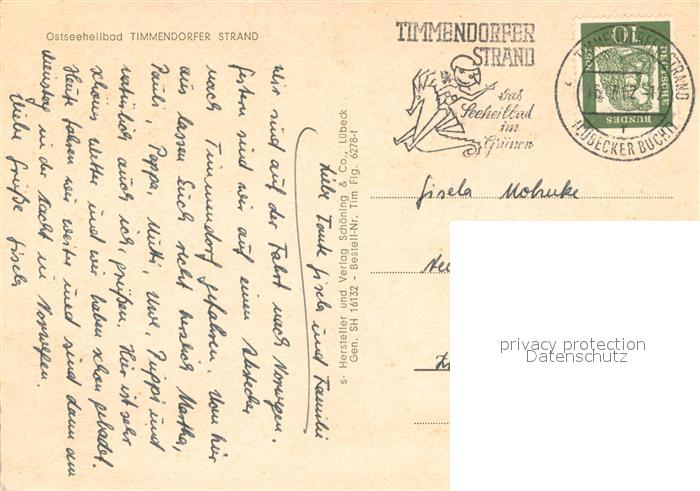 Ostseeheilbad TIMMENDORFER STRAND
TIMMENDORFER
STRAND
Das
Seeheilbad
im
Grünen
TIMMENDORFER STRAND
(LÜBECKER BUCHT)
10
DEUTSCHE
BUNDES
POST
Gisela
privacy protection
Datenschutz
s· Hersteller und Verlag Schöning & Co., Lübeck
Gen. SH 16132 - Bestell-Nr. Tim Flg. 6278-f
Liebe Tante Gisela und Familie
Wir sind auf der Fahrt nach Norwegen.
Gestern sind wir auf einen Abstecher
nach Timmendorf gefahren. Von hier
aus lassen Euch recht herzlich Martha,
Pauli, Pappa, Mutti, Uwe, Puppi und
natürlich auch ich, grüßen. Hier ist sehr
schönes Wetter und wir haben schon gebadet.
Heute fahren wir weiter und sind dann am
Dienstag in der Nacht in Norwegen.
Viele Grüße Gisela